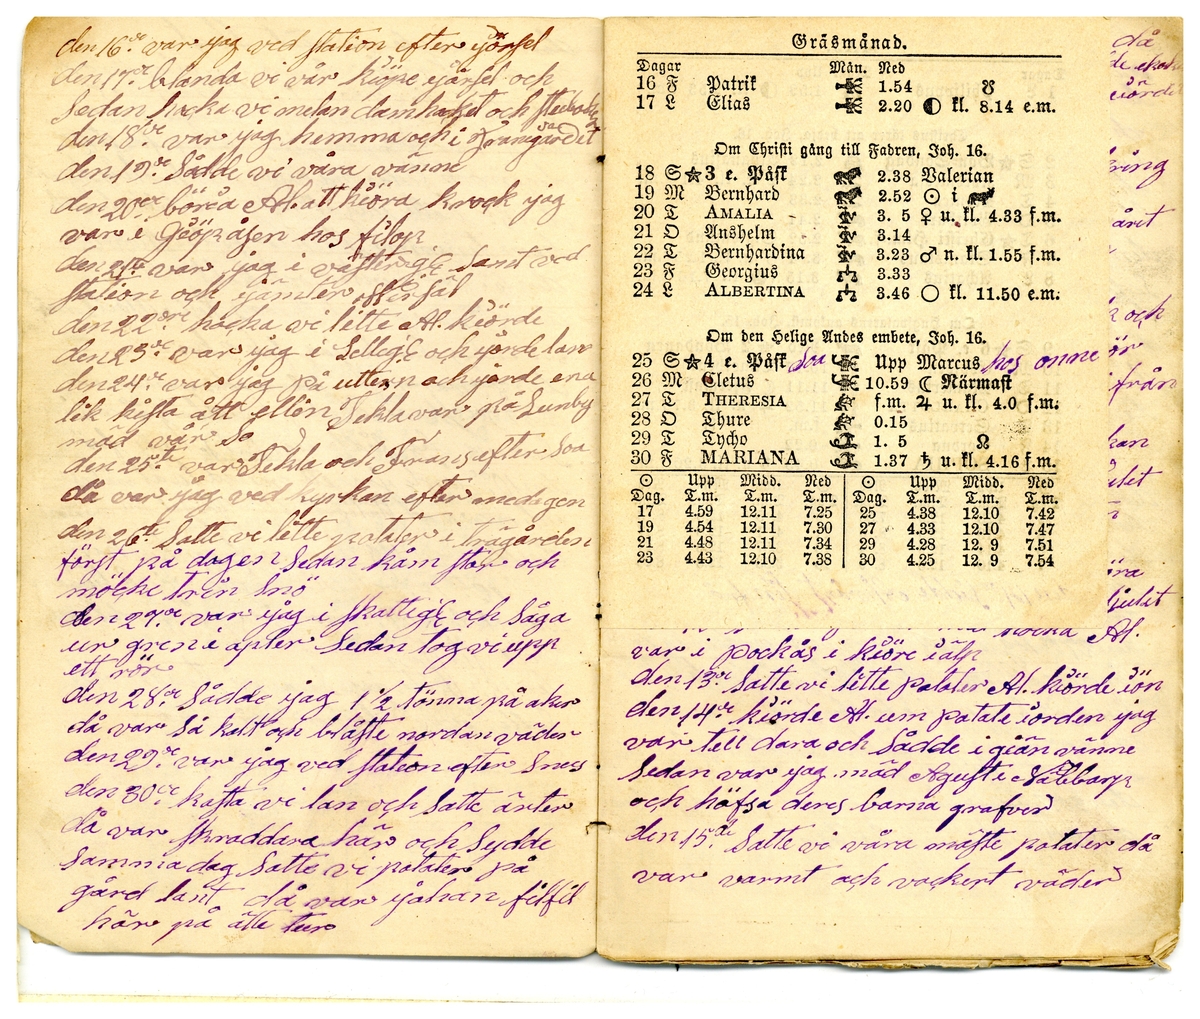 den 16de var jag ved station efter jörsel
den 17de blanda vi vår köpe jörsel och
Sedan hacka vi melan damhaket och
den 18de var jag hemma och i Framgårdet
den 19de Sålde vi våra vänne
den 20de böra Al. att kiöra krock jag
var i Göpåsen hos filop
den 21ta var jag i västerige samt ved
station och jämter
den 22dre hacka vi litte Al. kiörde
den 23de var jag i Sellegie och jörde lan
den 24de var jag på utten och jörde ena
lik kista ått ellin Tekla var på Lunby
mäd vår So
den 25te var Tekla och Frans efter Soa
då var jag ved kyrkan efter medegen
den 26te Satte vi litte potater i trägården
först på dagen Sedan kåm stor och
möcke trin Snö
den 27de var jag i skattigie och Såga
ur gren i apler Sedan tog vi upp
ett rör
den 28de Sådde jag 1 1/2 tönna på aker
då var Så kalt och blåste nordan väder
den 29de var jag ved station efter Snus
den 30de kasta vi lan och Satte ärter
då var Skraddara här och Sydde
Samma dag Satte vi potater på
gärd lant då var johan filfil
här på ätte tur
Gräsmånad.
Dagar Mån. Ned
16 F Patrik 1.54 ☋
17 L Elias 2.20 ◑ kl. 8.14 e.m.
Om Christi gång till Fadren, Joh. 16.
18 S ★ 3 e. Påsk 2.38 Valerian
19 M Bernhard 2.52 ☉ i
20 T AMALIA 3. 5 ♀ u. kl. 4.33 f.m.
21 O Anshelm 3.14
22 T Bernhardina 3.23 ♂ n. kl. 1.55 f.m.
23 F Georgius 3.33
24 L ALBERTINA 3.46 ○ kl. 11.50 e.m.
Om den Helige Andes embete, Joh. 16.
25 S ★ 4 e. Påsk Soa Upp Marcus hos onne ör
26 M Cletus 10.59 ☾ Närmast
27 T THERESIA f.m. ♃ u. kl. 4.0 f.m.
28 O Thure 0.15
29 T Tycho 1. 5 ☊
30 F MARIANA 1.37 ♄ u. kl. 4.16 f.m.
☉ Upp Midd. Ned ☉ Upp Midd. Ned
Dag. T.m. T.m. T.m. Dag. T.m. T.m. T.m.
17 4.59 12.11 7.25 25 4.38 12.10 7.42
19 4.54 12.11 7.30 27 4.33 12.10 7.47
21 4.48 12.11 7.34 29 4.28 12. 9 7.51
23 4.43 12.10 7.38 30 4.25 12. 9 7.54
då
och
från
hocka Al.
var i pockås i kiöre iälp
den 13de Satte vi litte potater Al. kiörde iön
den 14de kiörde Al. um potate iorden jag
var tell dara och Sådde i giän vänne
Sedan var jag mäd Agust i Nabbarp
och höfsa deres barna grafver
den 15de Satte vi våra mäste potater då
var varmt och vackert väder